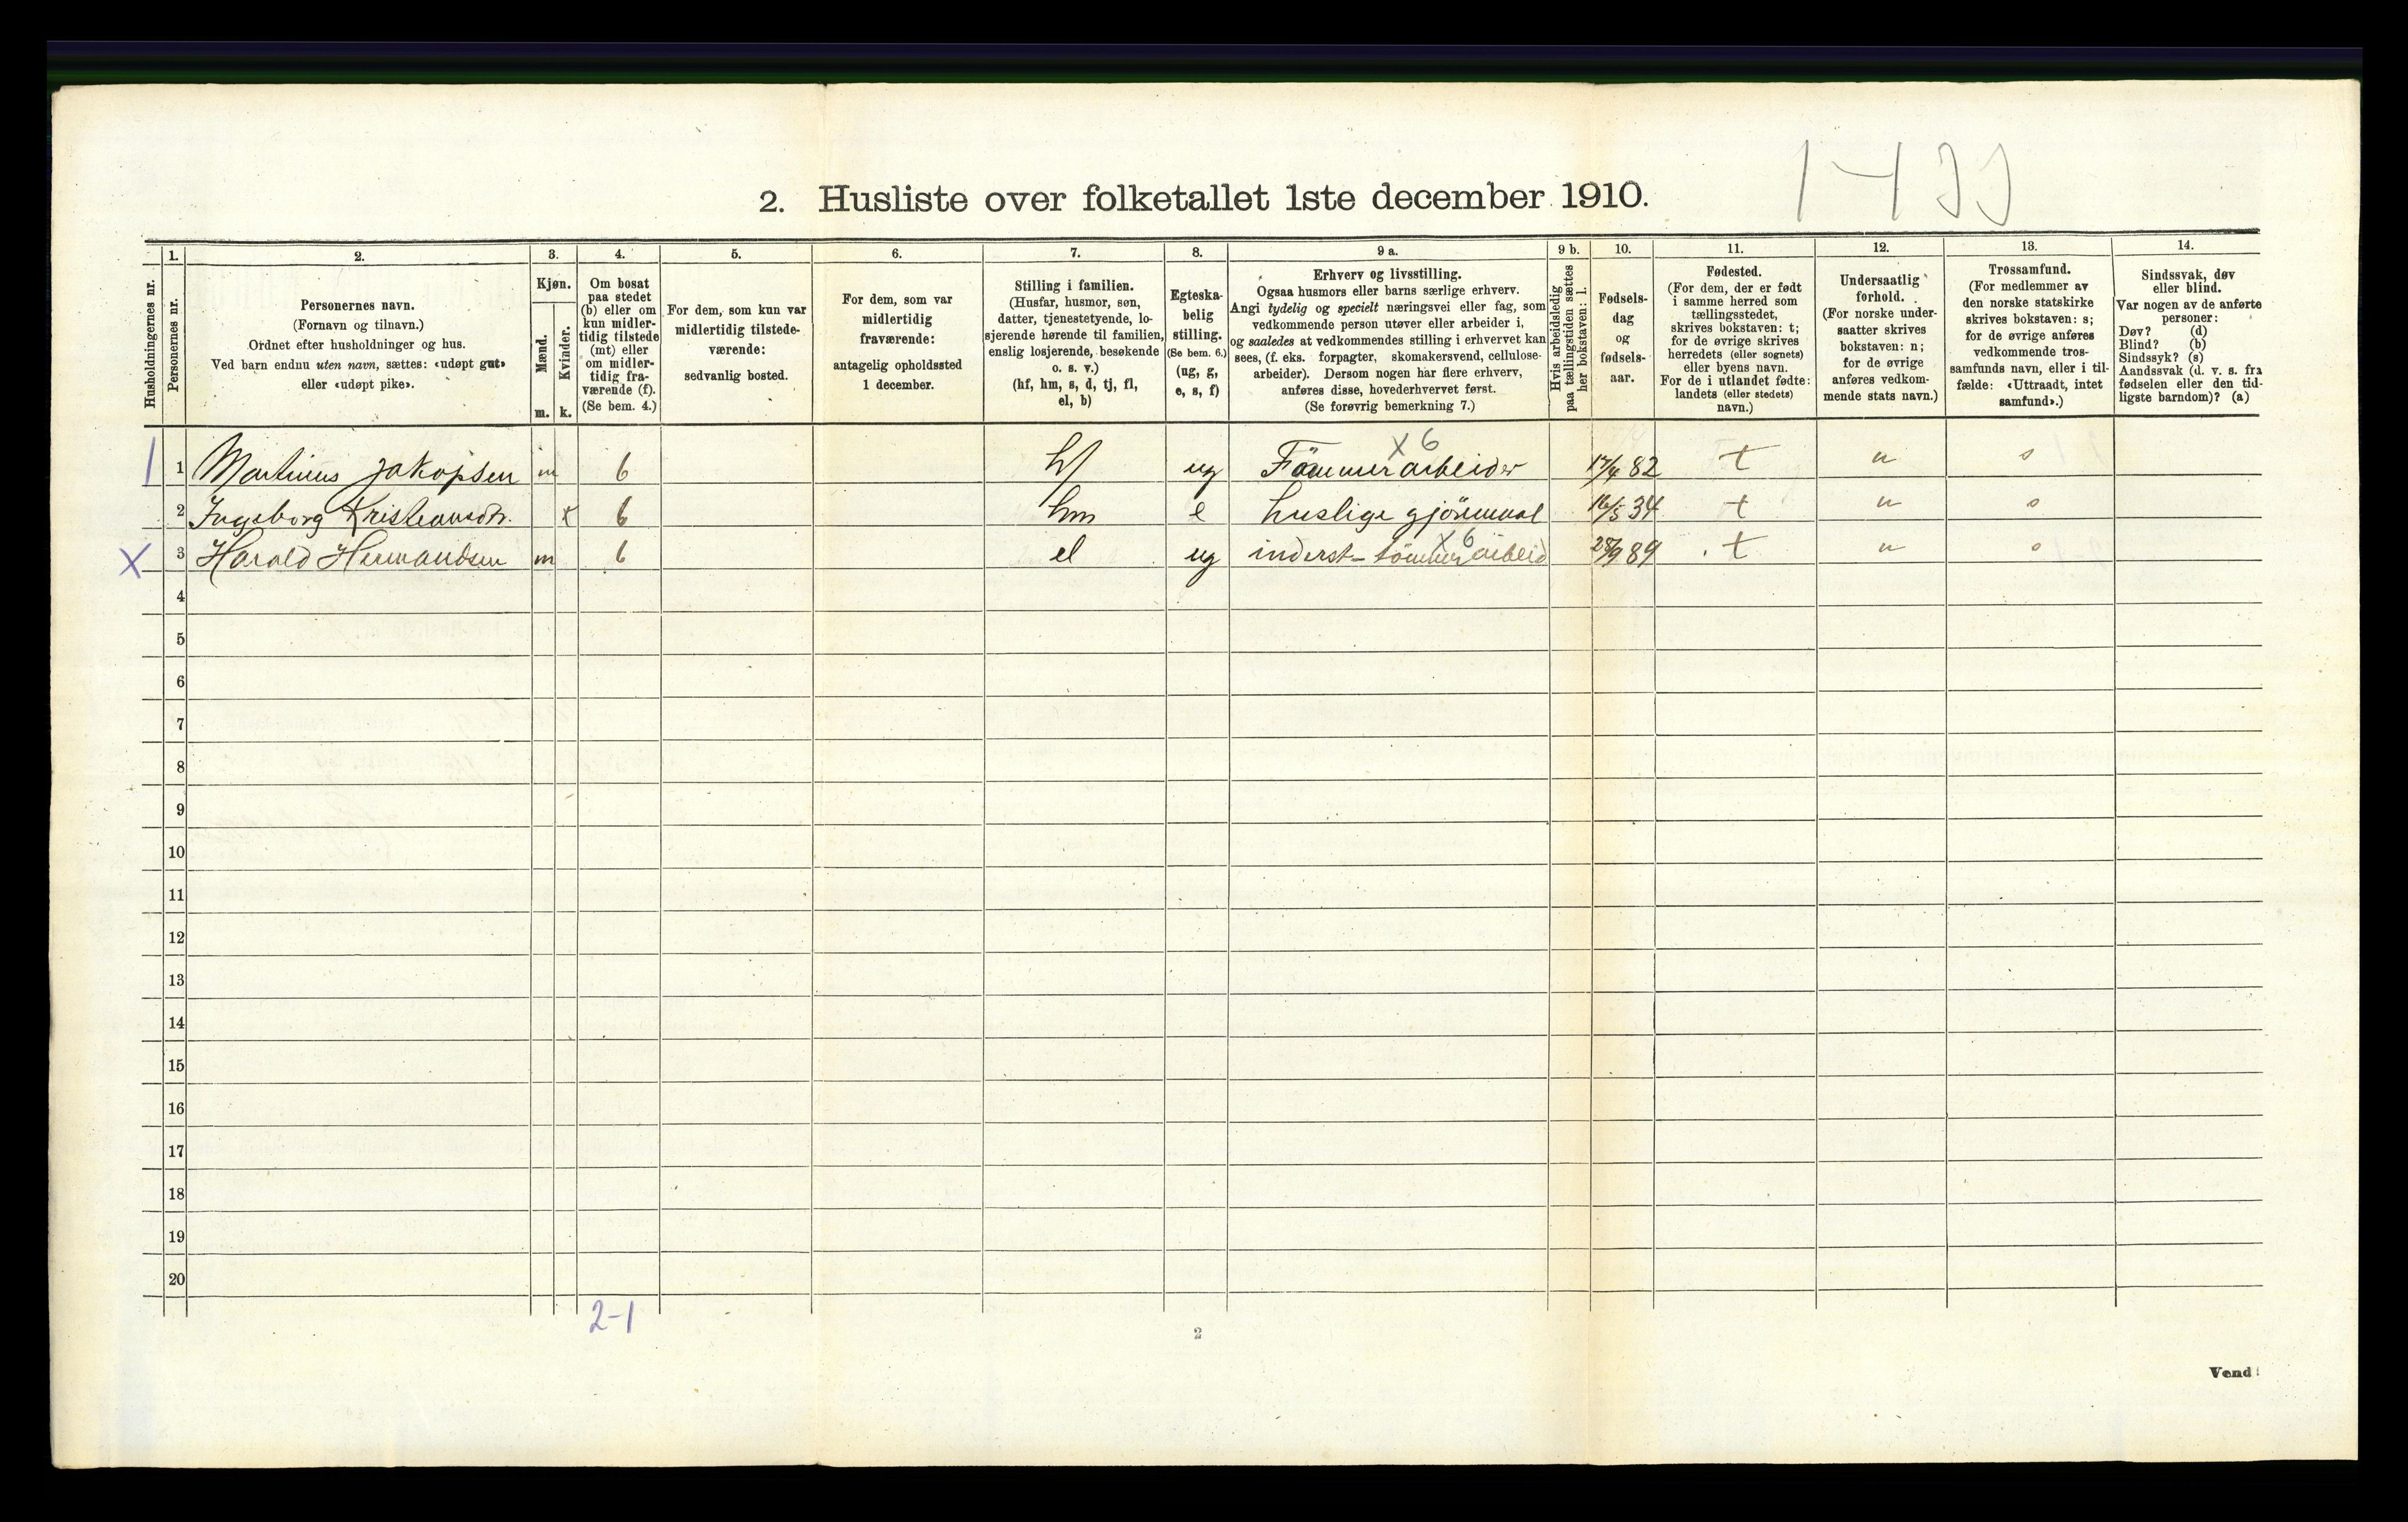 1433
2. Husliste over folketallet 1ste december 1910.
Husholdningernes nr.
1.
Personernes nr.
2.
Personernes navn.
(Fornavn og tilnavn.)
Ordnet efter husholdninger og hus.
Ved barn endnu uten navn, sættes: «udøpt gut»
eller «udøpt pike».
3.
Kjøn.
Mænd.
Kvinder.
m. k.
4.
Om bosat
paa stedet
(b) eller om
kun midler-
tidig tilstede
(mt) eller
om midler-
tidig fra-
værende (f).
(Se bem. 4.)
5.
For dem, som kun var
midlertidig tilstede-
værende:
sedvanlig bosted.
6.
For dem, som var
midlertidig
fraværende:
antagelig opholdssted
1 december.
7.
Stilling i familien.
(Husfar, husmor, søn,
datter, tjenestetyende, lo-
sjerende hørende til familien,
enslig losjerende, besøkende
o. s. v.)
(hf, hm, s, d, tj, fl,
el, b)
8.
Egteska-
belig
stilling.
(Se bem. 6.)
(ug, g,
e, s, f)
9 a.
Erhverv og livsstilling.
Ogsaa husmors eller barns særlige erhverv.
Angi tydelig og specielt næringsvei eller fag, som
vedkommende person utøver eller arbeider i,
og saaledes at vedkommendes stilling i erhvervet kan
sees, (f. eks. forpagter, skomakersvend, cellulose-
arbeider). Dersom nogen har flere erhverv,
anføres disse, hovederhvervet først.
(Se forøvrig bemerkning 7.)
9 b.
Hvis arbeidsledig
paa tællingstiden sættes
her bokstaven: l.
10.
Fødsels-
dag
og
fødsels-
aar.
11.
Fødested.
(For dem, der er født
i samme herred som
tællingsstedet,
skrives bokstaven: t;
for de øvrige skrives
herredets (eller sognets)
eller byens navn.
For de i utlandet fødte:
landets (eller stedets)
navn.)
12.
Undersaatlig
forhold.
(For norske under-
saatter skrives
bokstaven: n;
for de øvrige
anføres vedkom-
mende stats navn.)
13.
Trossamfund.
(For medlemmer av
den norske statskirke
skrives bokstaven: s;
for de øvrige anføres
vedkommende tros-
samfunds navn, eller i til-
fælde: «Uttraadt, intet
samfund».)
14.
Sindssvak, døv
eller blind.
Var nogen av de anførte
personer:
Døv? (d)
Blind? (b)
Sindssyk? (s)
Aandssvak (d. v. s. fra
fødselen eller den tid-
ligste barndom)? (a)
x 6
1 1 Martinus Jakopsen m b hf ug Tömmerarbeider 17/4 82 t n s
2 Ingeborg Kristiansdtr. k b hm e huslige gjöremaal 16/5 34 t n s
x 6
X 3 Harald Hermandsen m b el ug inderst - tömmerarbeid 28/9 89 t n s
4
5
6
7
8
9
10
11
12
13
14
15
16
17
18
19
20
2-1
2
Vend!